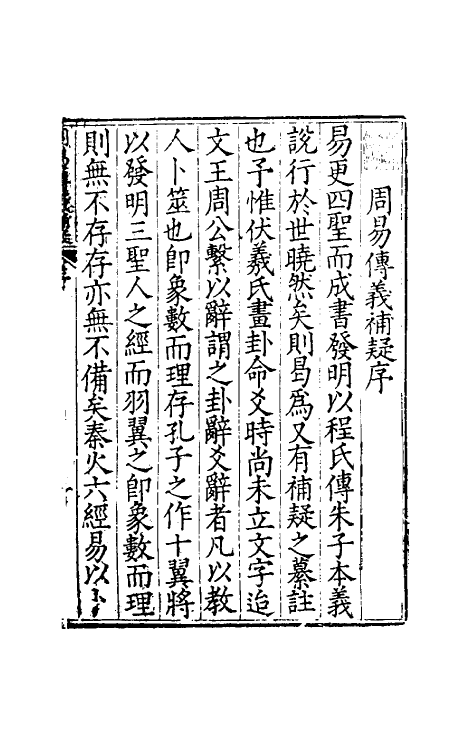 周易傳義補疑序
易更四聖而成書發明以程氏傳朱子本義
說行於世曉然矣則曷爲又有補疑之纂註
也予惟伏羲氏畫卦命爻時尚未立文字迨
文王周公繫以辭謂之卦辭爻辭者凡以教
人卜筮也卽象數而理存孔子之作十翼將
以發明三聖人之經而羽翼之卽象數而理
則無不存存亦無不備矣秦火六經易以卜